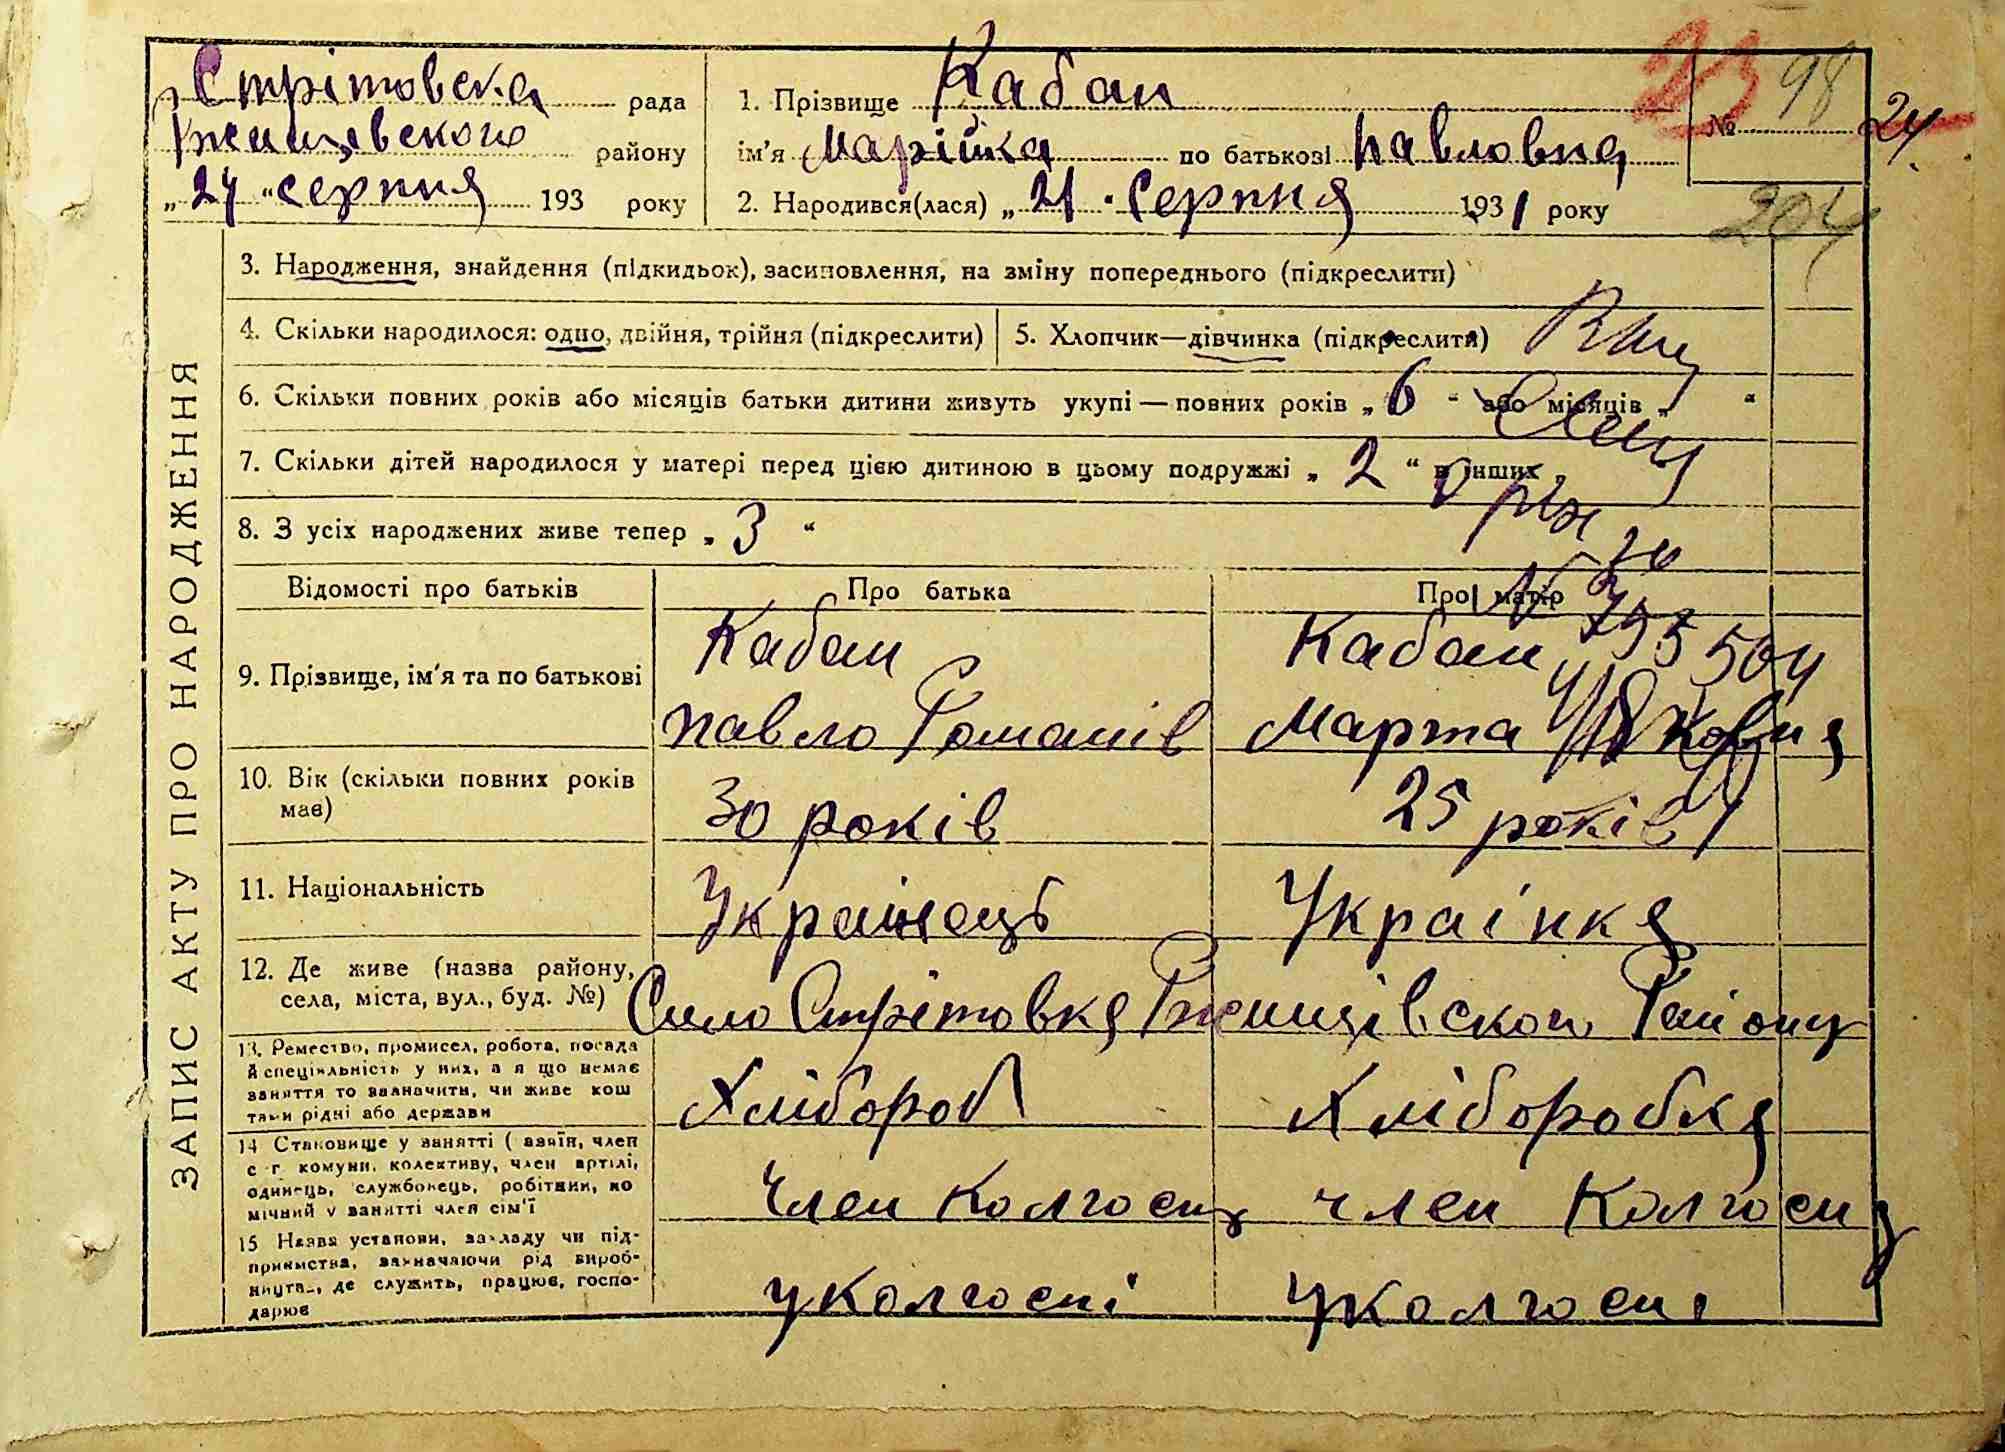 Стрітовска рада
Ржищевского району
„24“ серпня 193 року
1. Прізвище Кабан
ім'я Марійка по батькові Павловна
2. Народився(лася) „21“ Серпня 1931 року
23
98
№ 24
204
ЗАПИС АКТУ ПРО НАРОДЖЕННЯ
3. Народження, знайдення (підкидьок), засиновлення, на зміну попереднього (підкреслити)
4. Скільки народилося: одно, двійня, трійня (підкреслити)
5. Хлопчик—дівчинка (підкреслити)
6. Скільки повних років або місяців батьки дитини живуть укупі — повних років „6“ або місяців „ “
7. Скільки дітей народилося у матері перед цією дитиною в цьому подружжі „2“ в інших „
8. З усіх народжених живе тепер „3“
Відомості про батьків
Про батька
Про матір
9. Прізвище, ім'я та по батькові
Кабан
Павло Романів
Кабан
Марта
504
10. Вік (скільки повних років має)
30 років
25 років
11. Національність
Українець
Українка
12. Де живе (назва району, села, міста, вул., буд. №)
Село Стрітовка Ржищівского Району
13. Ремество, промисел, робота, посада
й спеціяльність у них, а я що немає
заняття то зазначити, чи живе кош
тами рідні або держави
Хлібороб
Хліборобка
14 Становище у занятті ( азяїн, член
с г. комуни, колективу, член артілі,
одинець, службовець, робітник, по
мічний у занятті член сім'ї
Член Колгоспу
член Колгоспу
15 Назва установи, закладу чи під-
приємства, зазначаючи рід вироб-
ництва, де служить, працює, госпо-
дарює
у колгоспі
у колгоспі